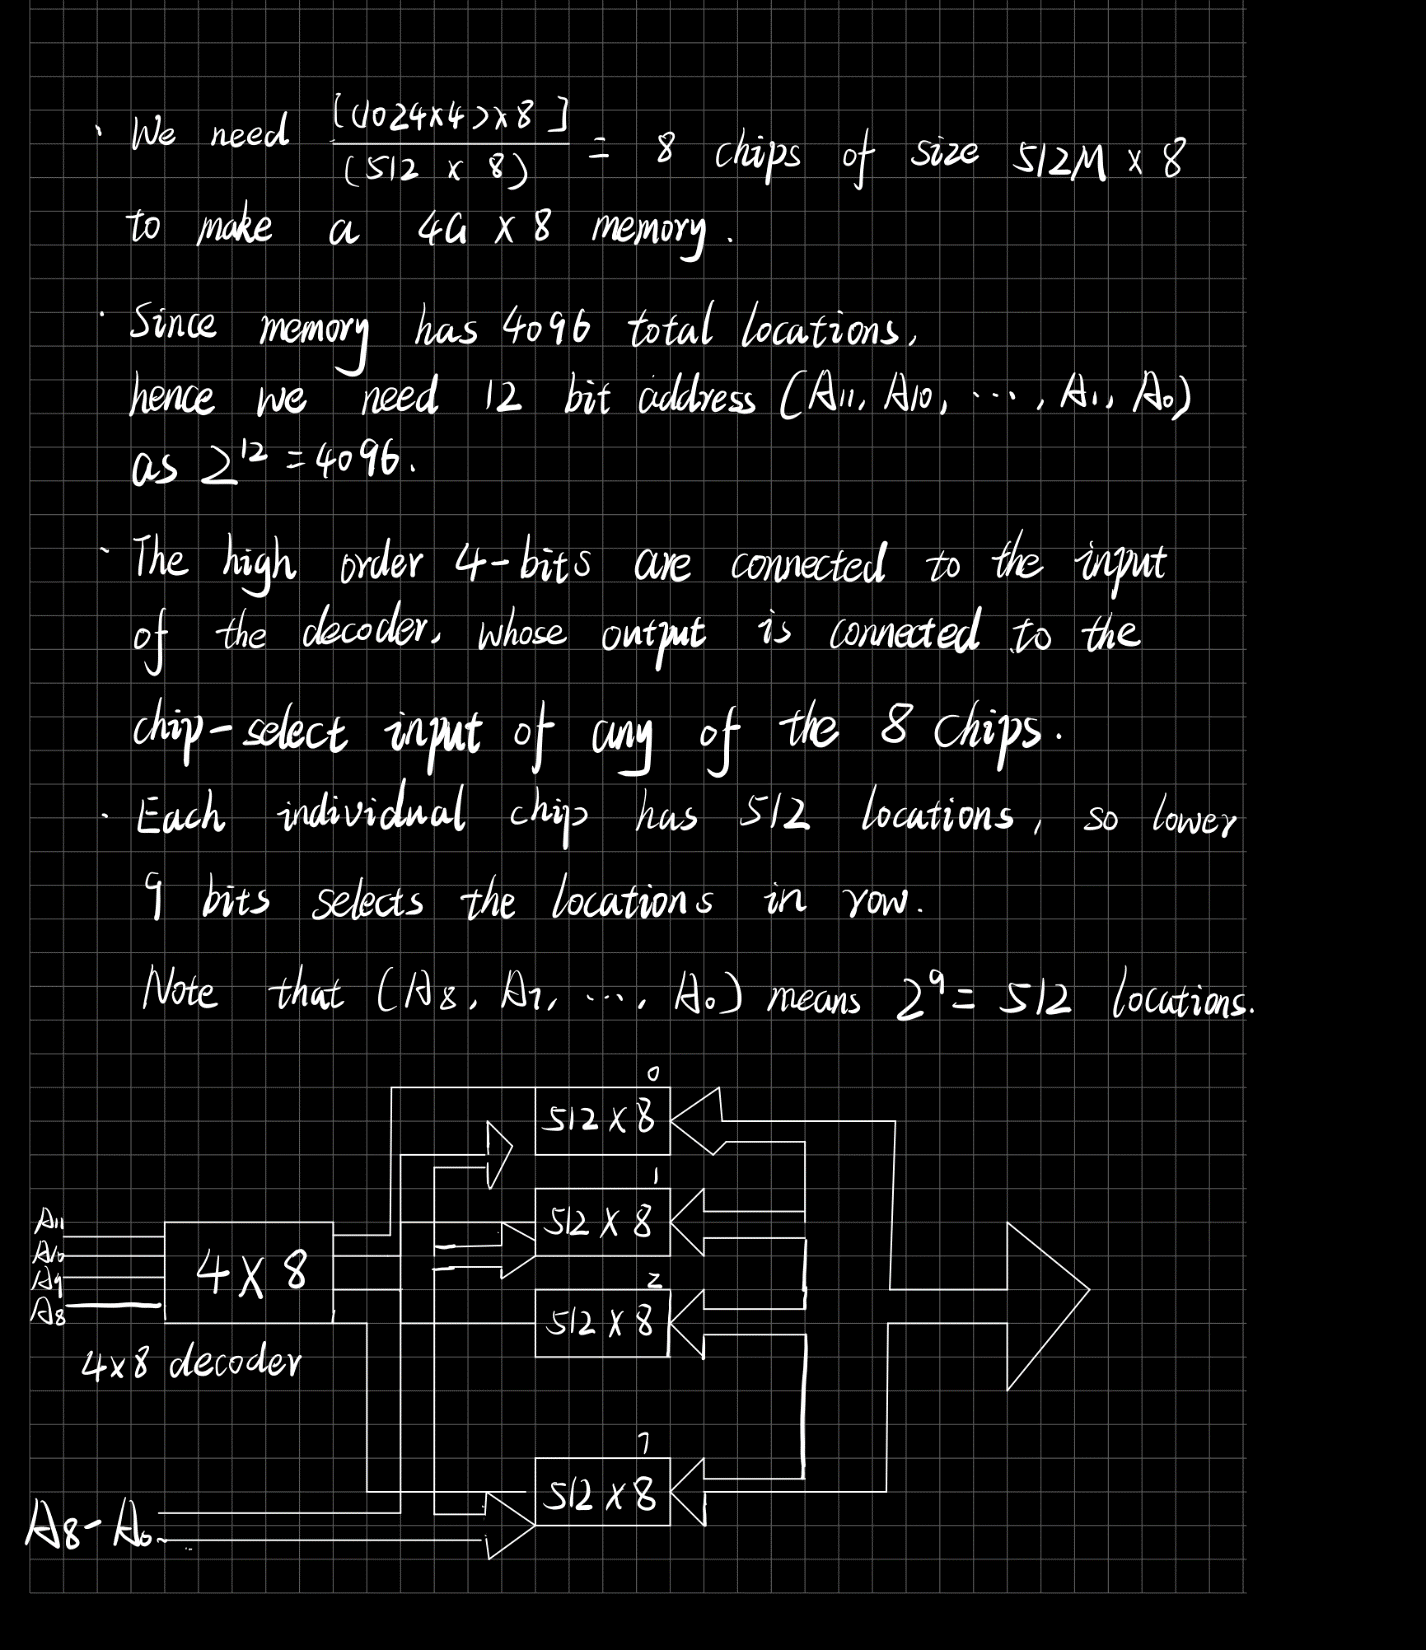 · We need [(1024×4)×8] / (512 × 8) = 8 chips of size 512M × 8
to make a 4G × 8 memory.
· Since memory has 4096 total locations,
hence we need 12 bit address (A11, A10, ···, A1, A0)
as 2^12 = 4096.
· The high order 4-bits are connected to the input
of the decoder, whose output is connected to the
chip-select input of any of the 8 chips.
· Each individual chip has 512 locations, so lower
9 bits selects the locations in row.
Note that (A8, A7, ···, A0) means 2^9 = 512 locations.
0
512 × 8
1
512 × 8
A11
A10
A9
A8
4 × 8
2
512 × 8
4×8 decoder
7
512 × 8
A8-A0